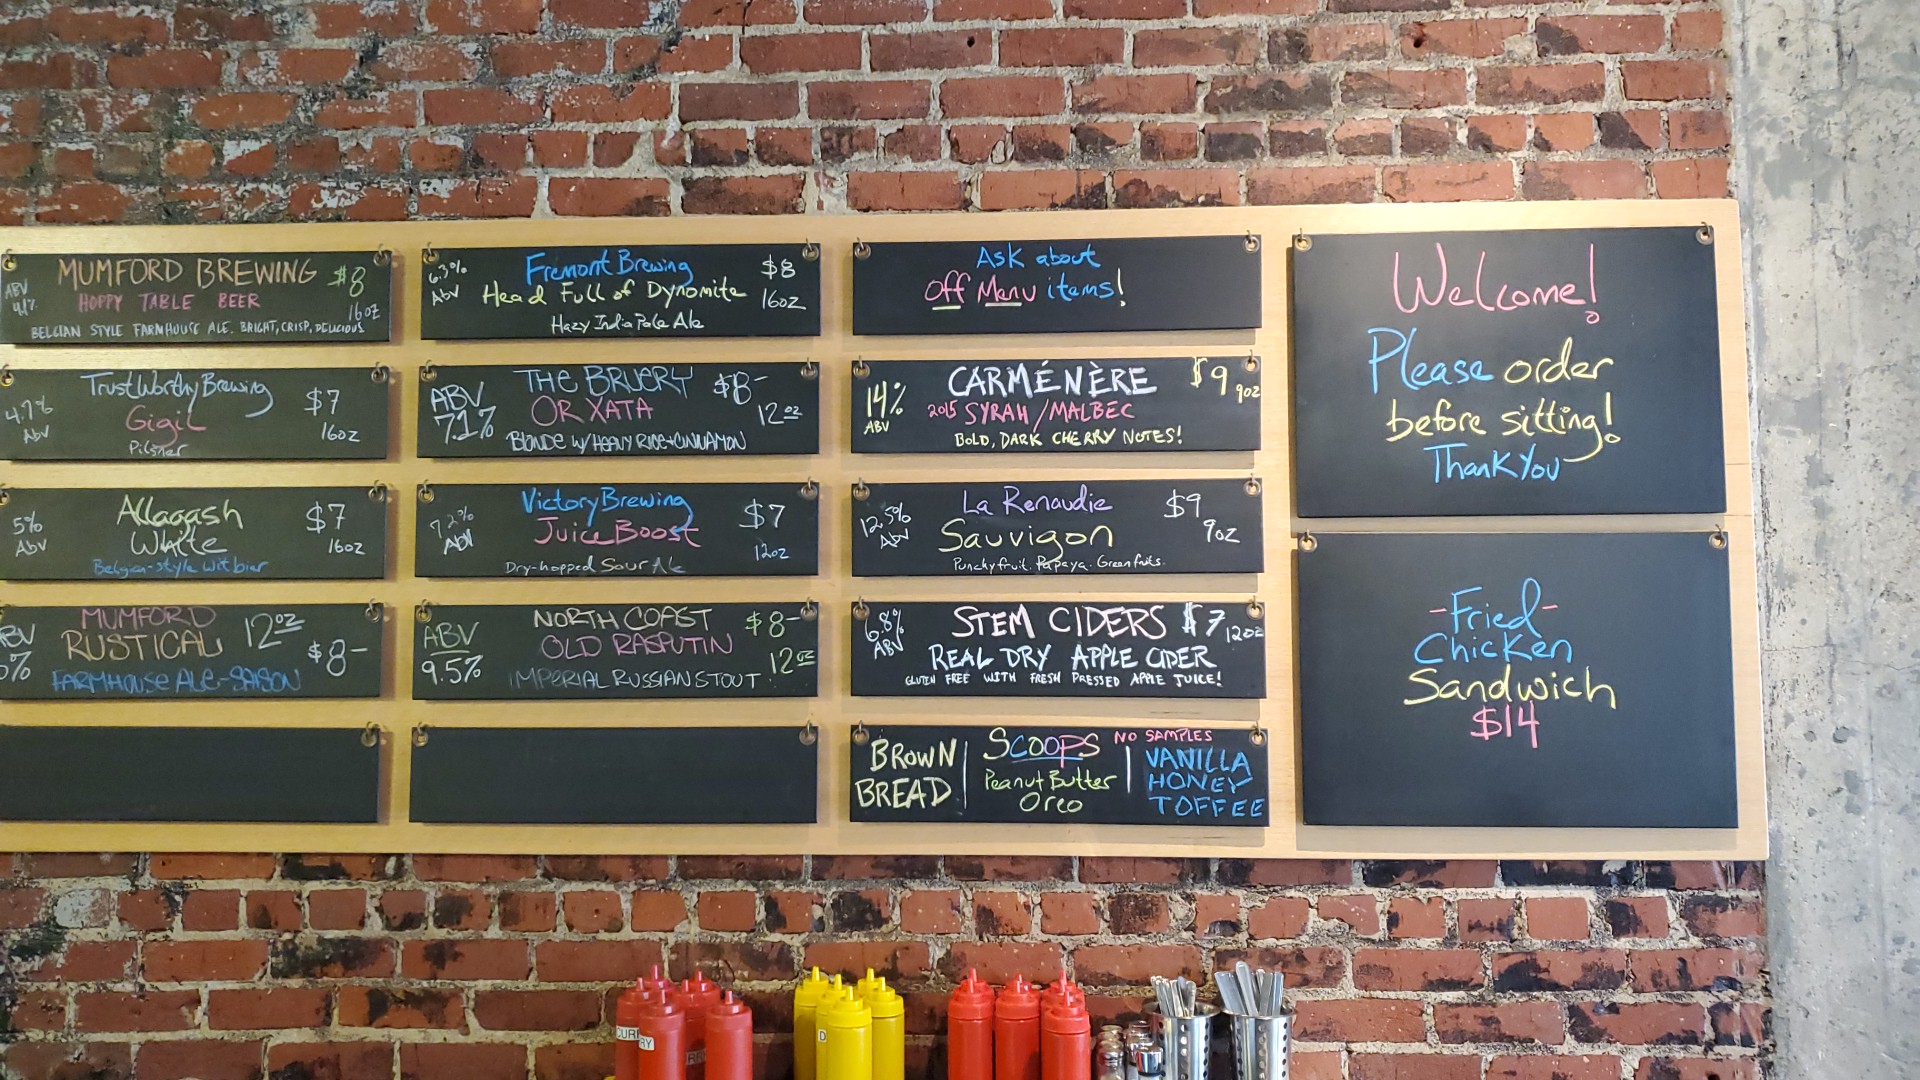 MUMFORD BREWING $8
HOPPY TABLE BEER
ABV
4.1%
16oz
BELGIAN STYLE FARMHOUSE ALE. BRIGHT, CRISP, DELICIOUS
TrustWorthy Brewing $7
4.7%
Abv
Gigil
16oz
Pilsner
Allagash $7
5%
Abv
White
16oz
Belgian-style witbier
MUMFORD 12oz
RUSTICAL $8-
FARMHOUSE ALE-SAISON
6.3%
Abv
Fremont Brewing $8
Head Full of Dynomite 16oz
Hazy India Pale Ale
ABV
7.1%
THE BRUERY $8-
OR XATA 12oz
BLONDE W/HEAVY RICE+CINNAMON
7.2%
Abv
Victory Brewing $7
Juice Boost
12oz
Dry-hopped Sour Ale
ABV
9.5%
NORTH COAST $8-
OLD RASPUTIN 12oz
IMPERIAL RUSSIAN STOUT
Ask about
Off Menu items!
14%
ABV
CARMÉNÈRE $9 9oz
2015 SYRAH/MALBEC
BOLD, DARK CHERRY NOTES!
12.5%
Abv
La Renaudie $9
Sauvigon 9oz
Punchy fruit. Papaya. Green fruits.
6.8%
ABV
STEM CIDERS $7 12oz
REAL DRY APPLE CIDER
GLUTEN FREE WITH FRESH PRESSED APPLE JUICE!
BROWN
BREAD
SCOOPS
Peanut Butter
Oreo
NO SAMPLES
VANILLA
HONEY
TOFFEE
Welcome!
Please order
before sitting!
Thank You
-Fried-
Chicken
Sandwich
$14